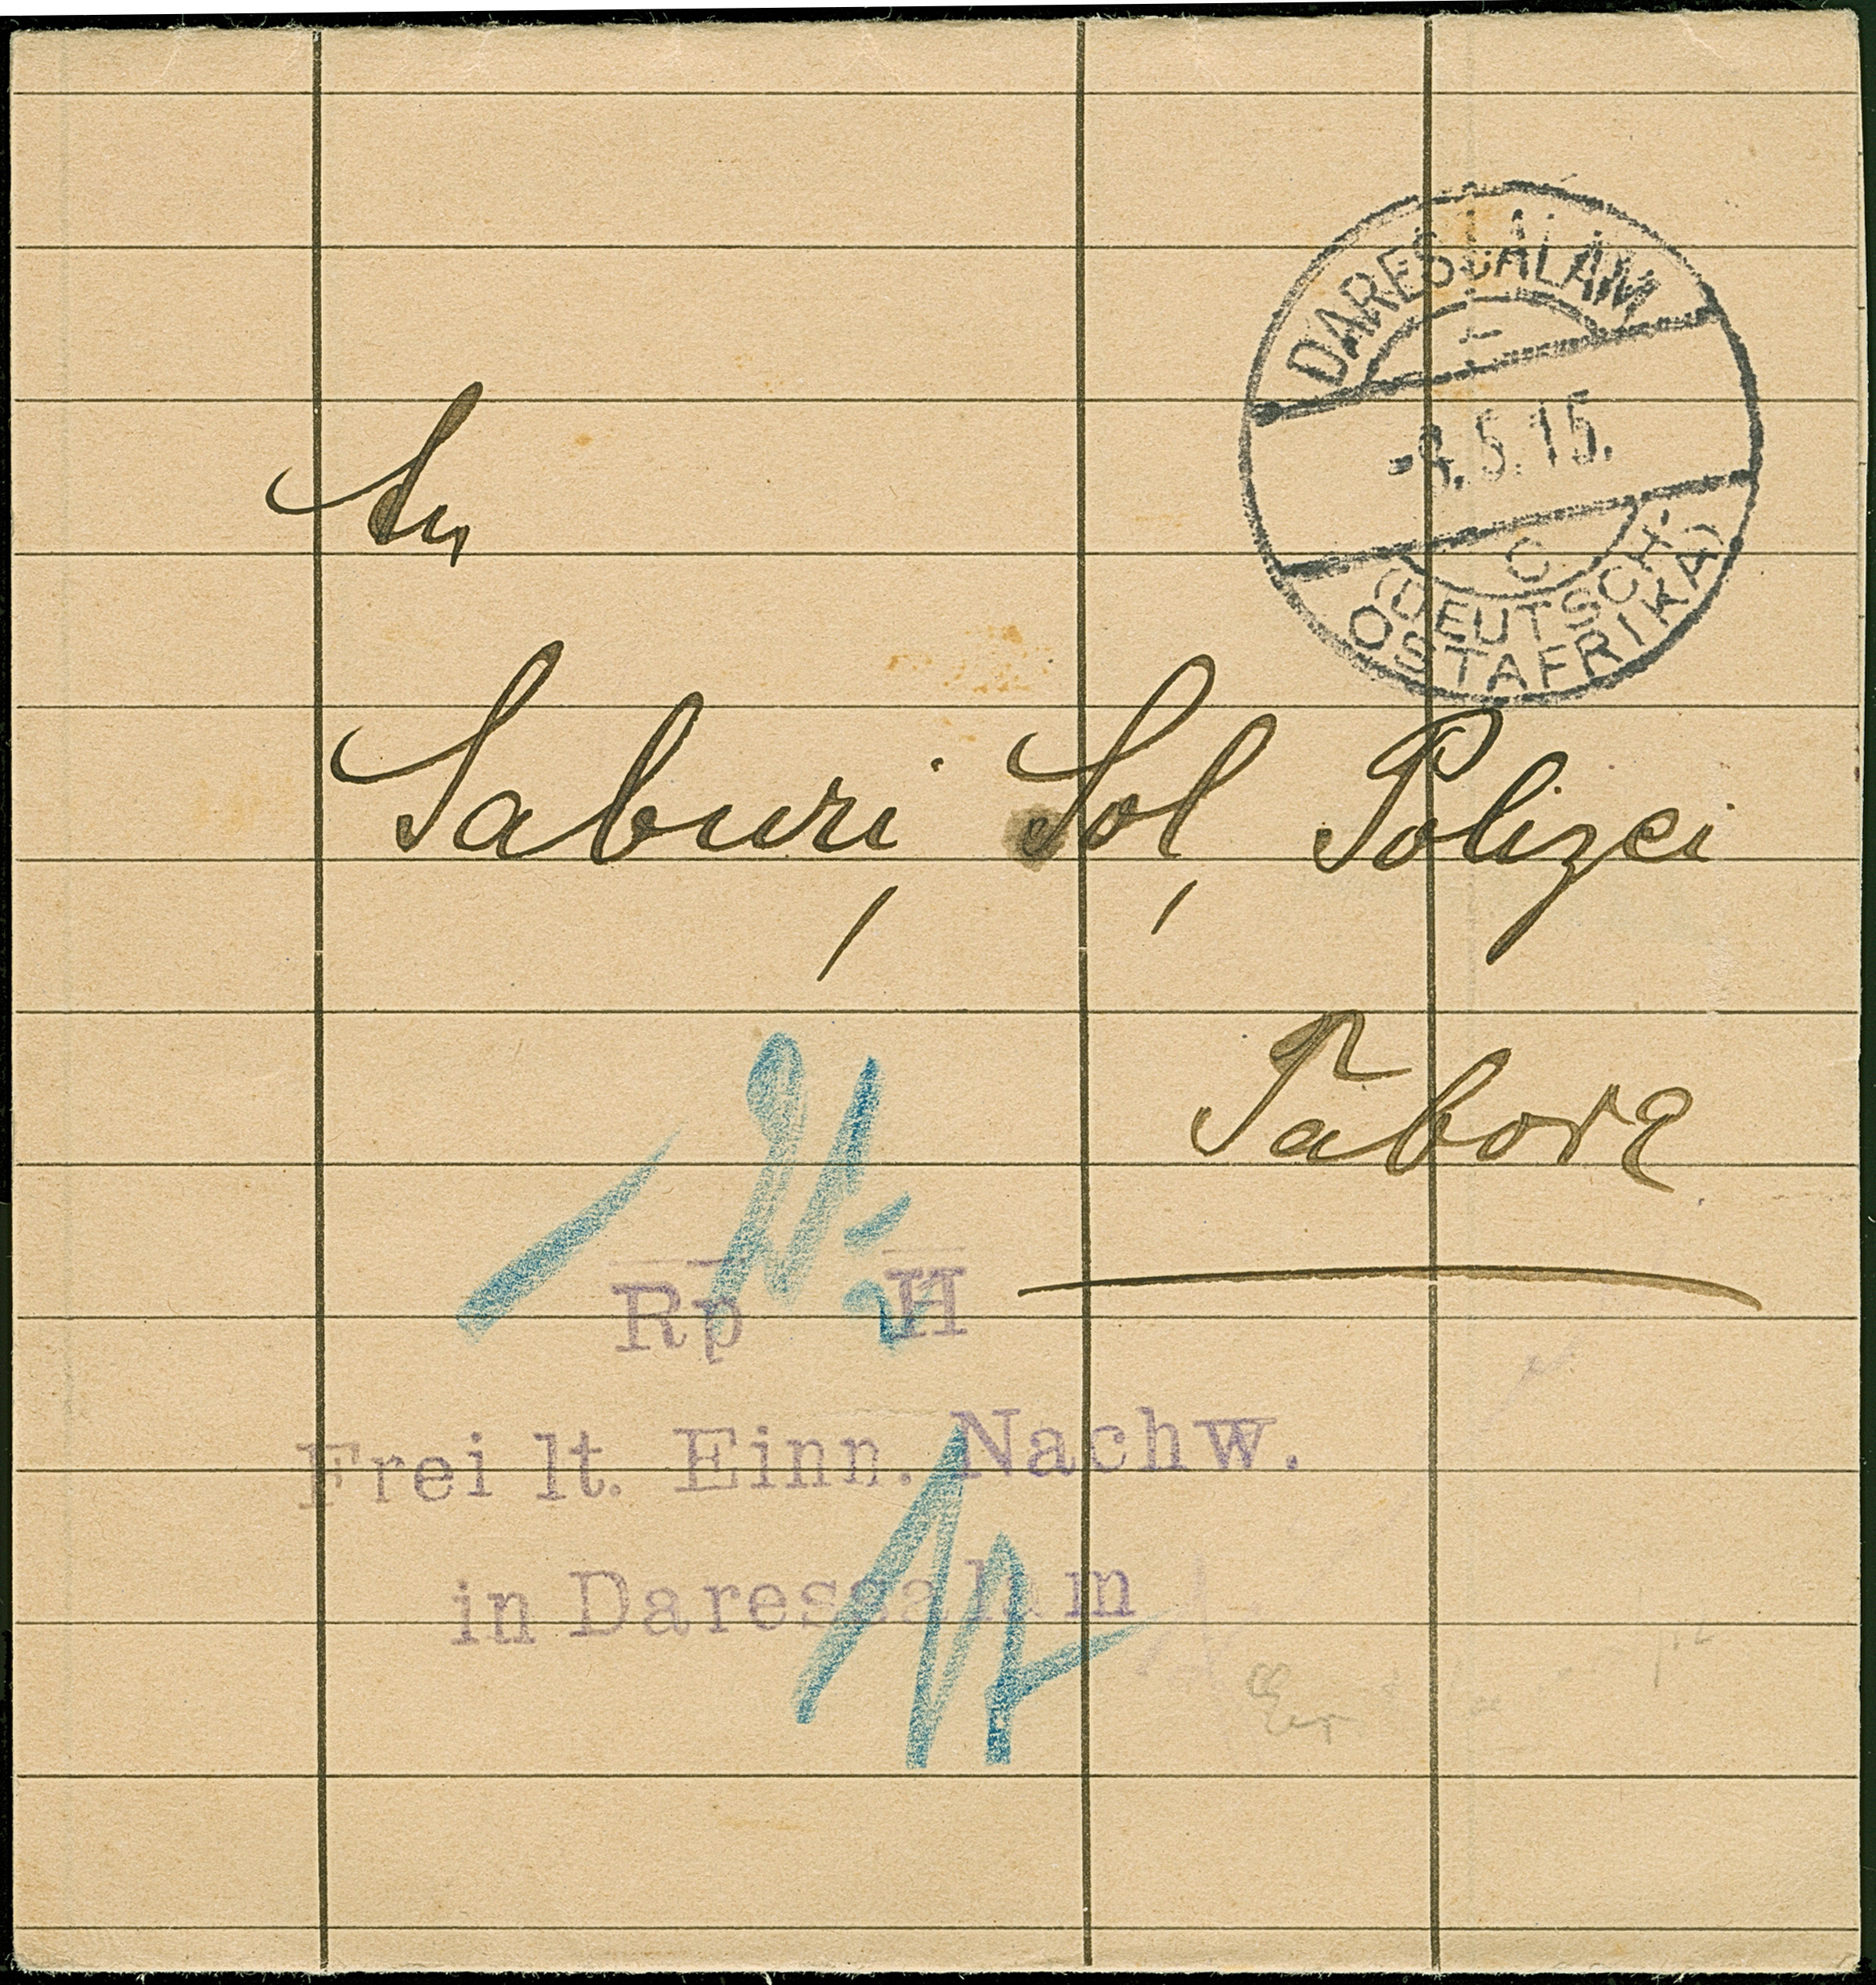 DARESSALAM
5.15.
C
(DEUTSCH-
OSTAFRIKA)
An
Saburi, Sol, Polizei
Tabora
Rp H
Frei lt. Einn. Nachw.
in Daressalam